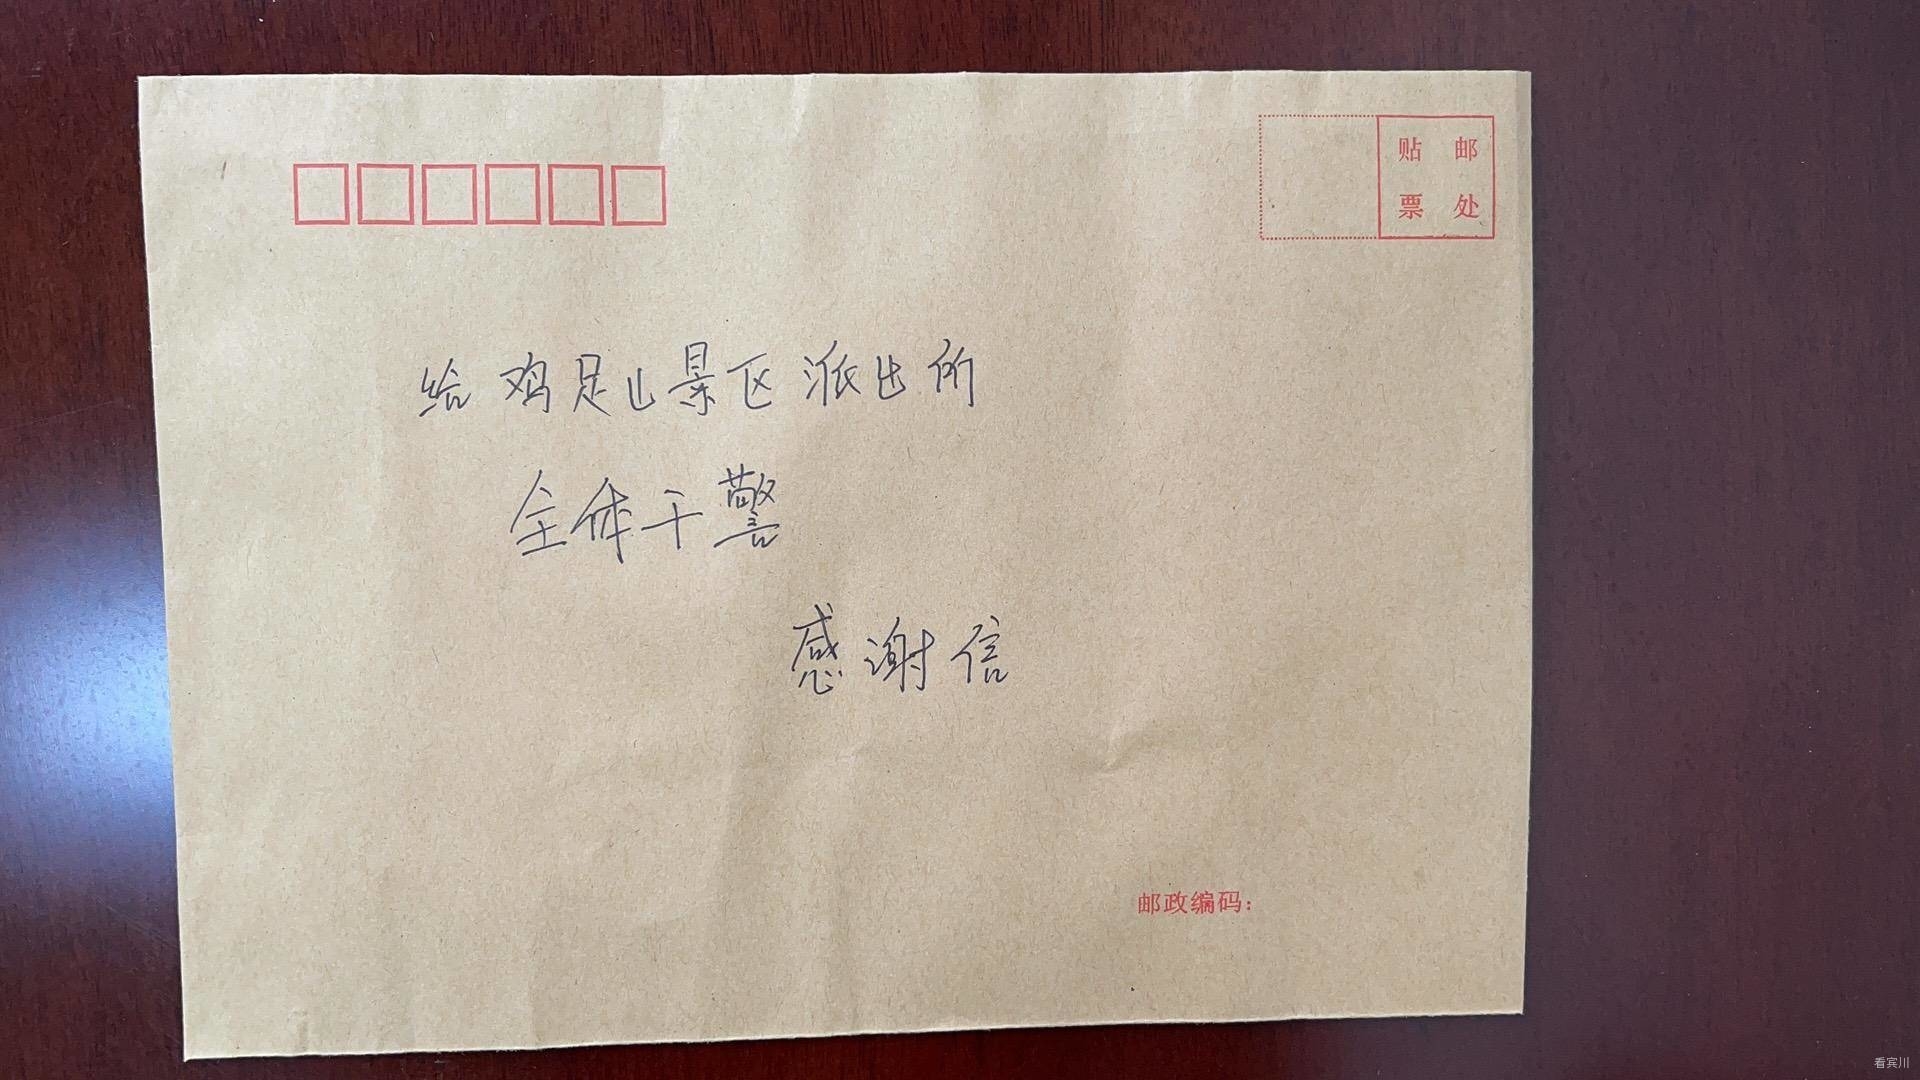 贴 邮
票 处
给鸡足山景区派出所
全体干警
感谢信
邮政编码:
看宾川